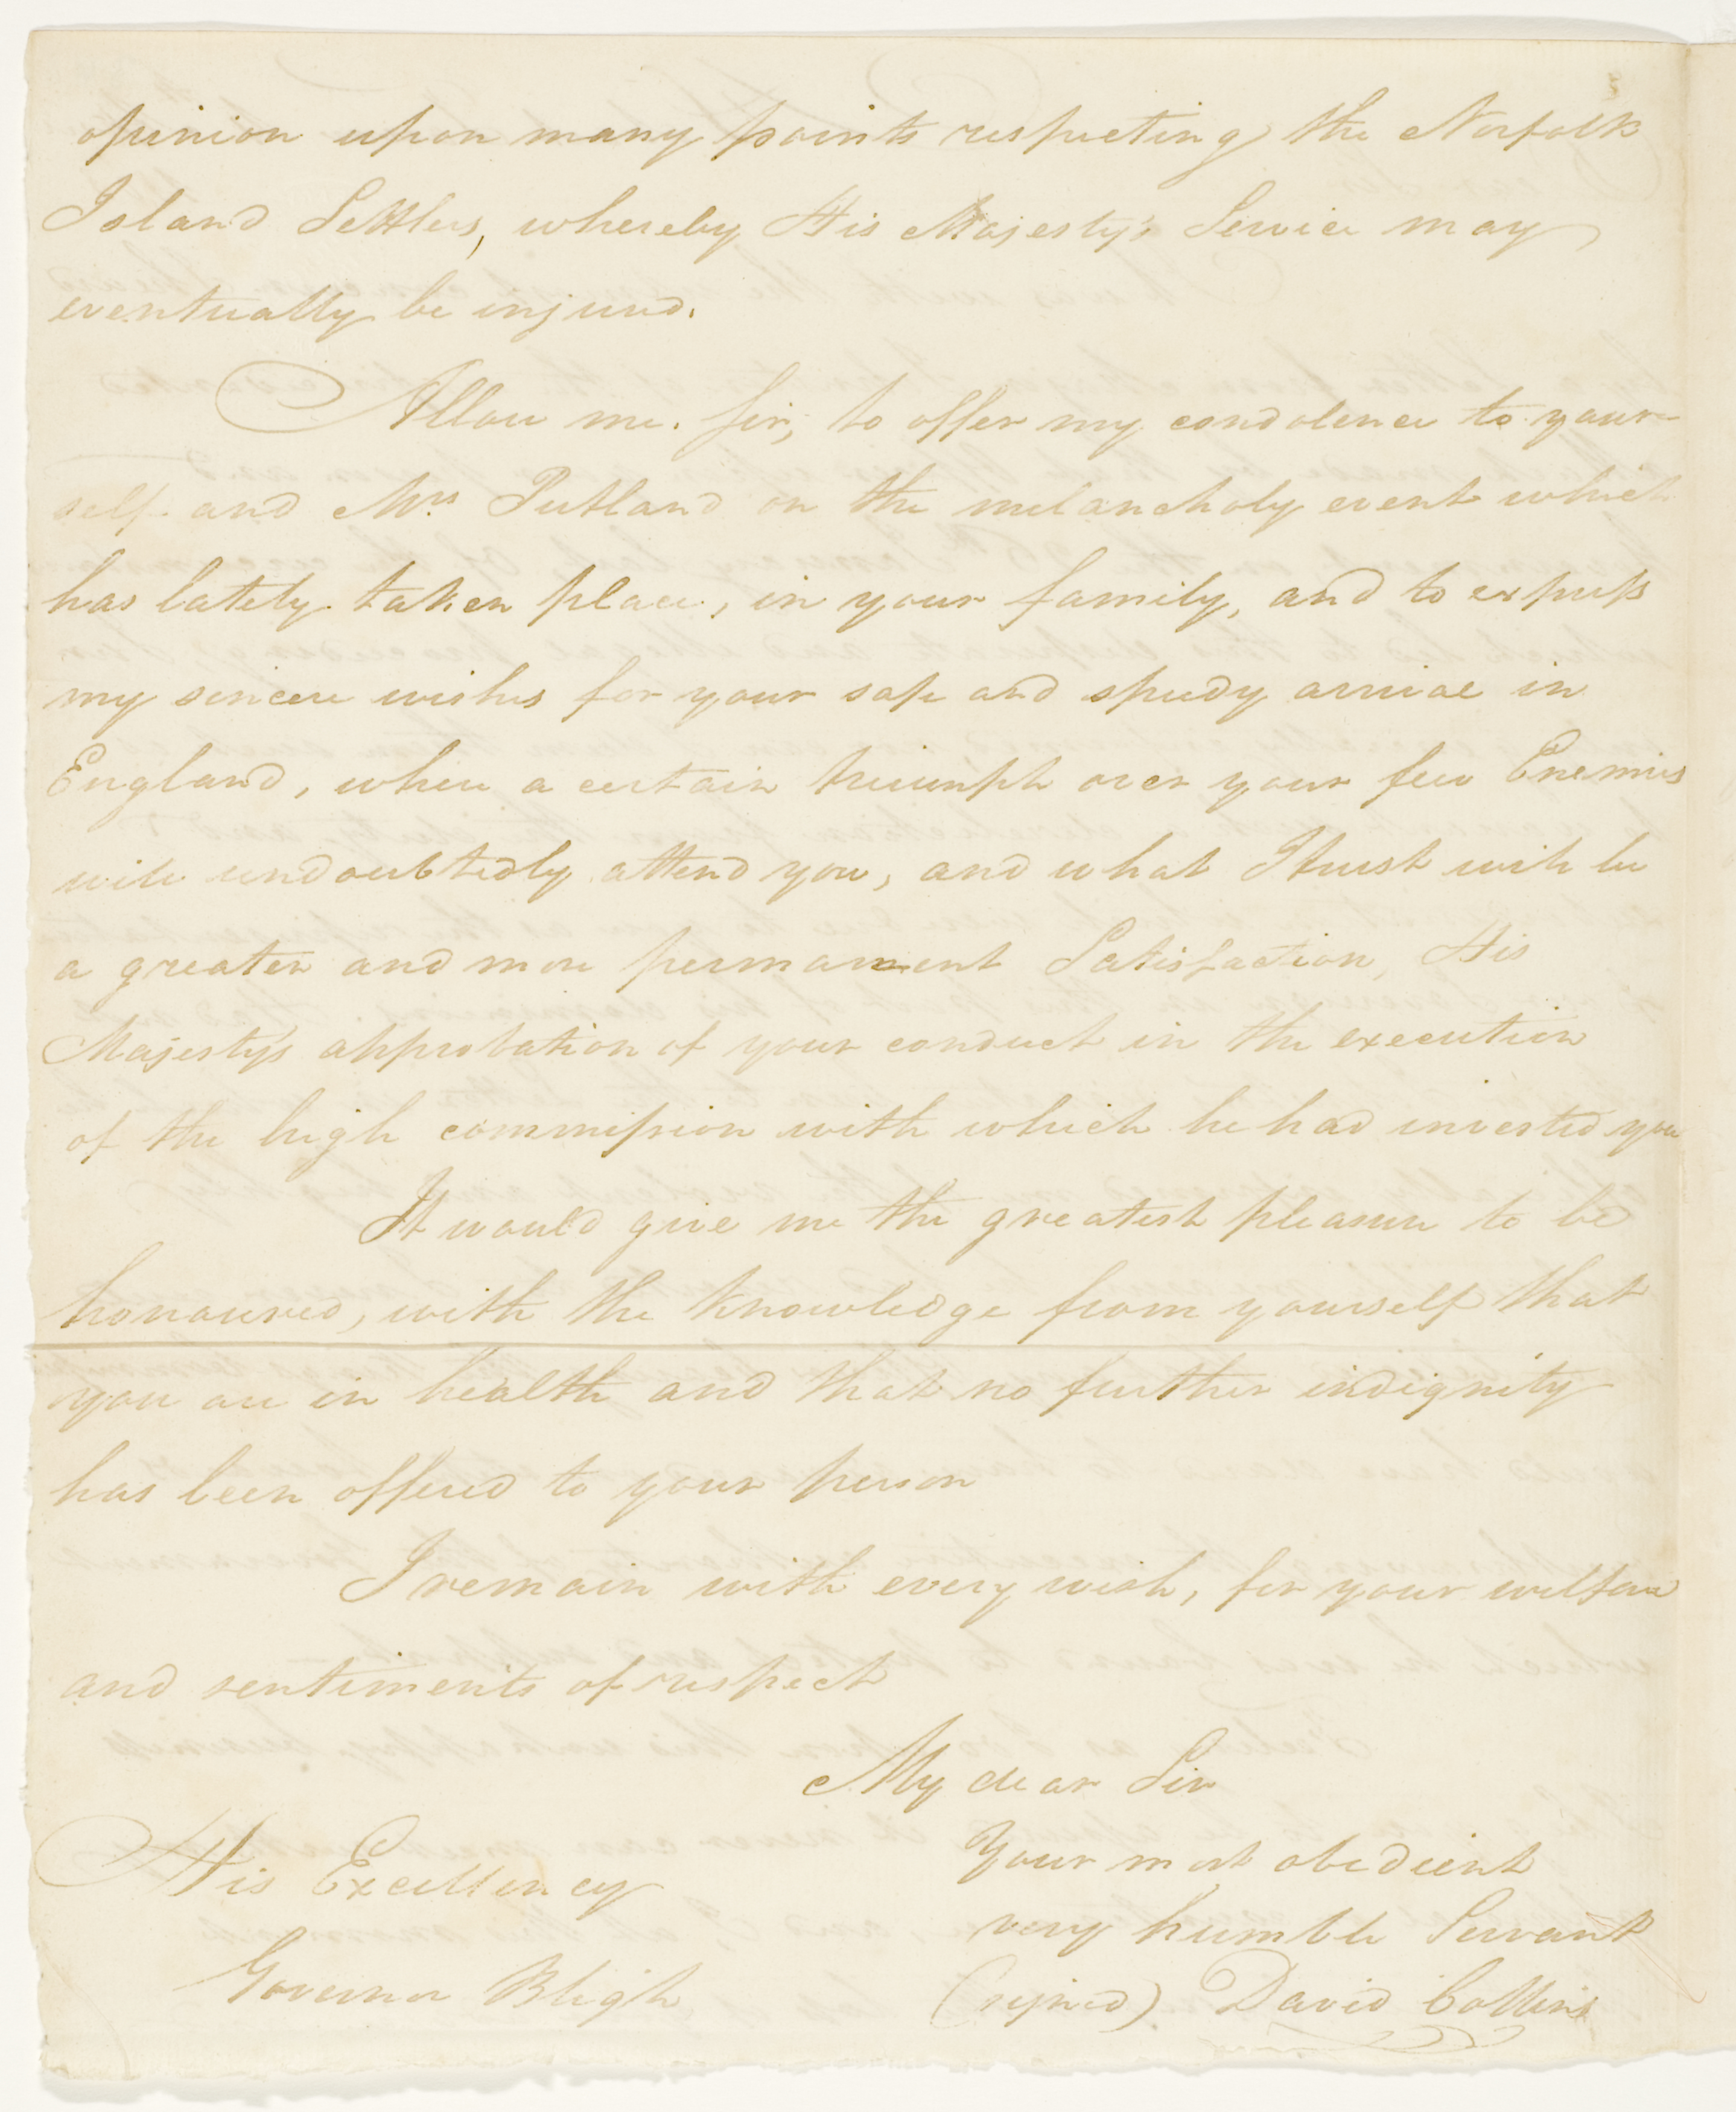 opinion upon many points respecting the Norfolk
Island Settlers, whereby His Majesty's Service may
eventually be injured.
Allow me. Sir, to offer my condolence to your-
self and Mrs Putland on the melancholy event which
has lately taken place, in your family, and to express
my sincere wishes for your safe and speedy arrival in
England, where a certain triumph over your few Enemies
will undoubtedly attend you, and what I trust will be
a greater and more permanent Satisfaction, His
Majesty's approbation of your conduct in the execution
of the high commission with which he had invested you
It would give me the greatest pleasure to be
honoured, with the knowledge from yourself that
you are in health and that no further indignity
has been offered to your person
I remain with every wish, for your welfare
and sentiments of respect
My dear Sir
Your most obedient
very humble Servant
(signed) David Collins
His Excellency
Governor Bligh